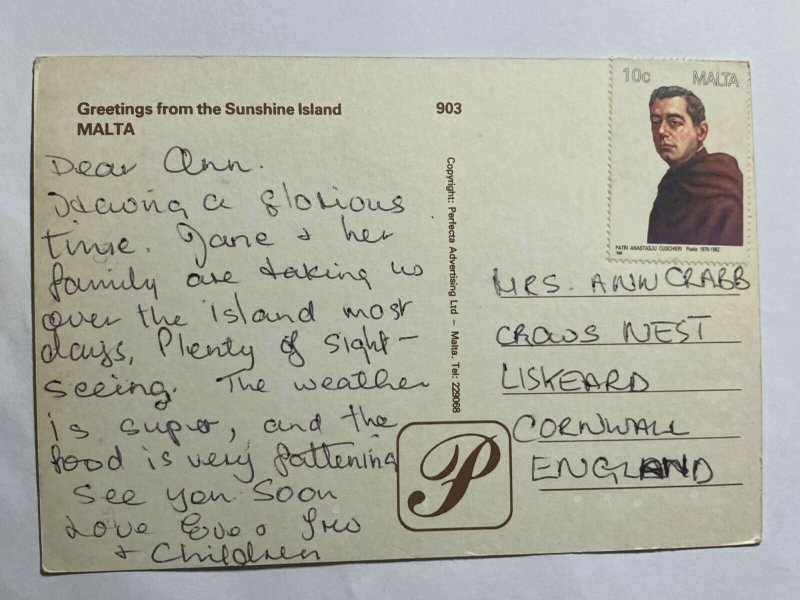 Greetings from the Sunshine Island
MALTA
903
Dear Ann.
Having a glorious
time. Jane & her
family are taking us
over the Island most
days, Plenty of sight-
seeing. The weather
is super, and the
food is very fattening
See you soon
Love
& Children
Copyright: Perfecta Advertising Ltd – Malta. Tel: 229068
P
10c MALTA
PATRI ANASTASJU CUSCHIERI Poeta 1876-1962
MRS. ANN CRABB
CROWS NEST
LISKEARD
CORNWALL
ENGLAND